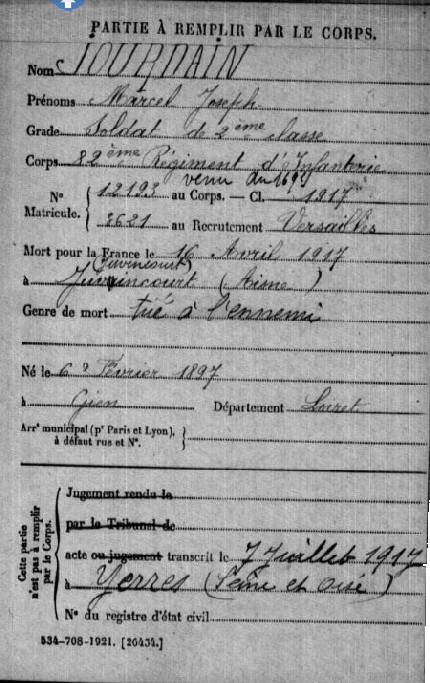 PARTIE À REMPLIR PAR LE CORPS.
Nom JOURDAIN
Prénoms Marcel Joseph
Grade Soldat de 2ème classe
Corps 82ème Régiment d'Infanterie
venu du 169e
N° Matricule. { 12193 au Corps. — Cl. 1917
2621 au Recrutement Versailles
Mort pour la France le 16 Avril 1917
(Juvincourt)
à Juvincourt (Aisne)
Genre de mort tué à l'ennemi
Né le 6 Février 1897
à Gien Département Loiret
Arrt municipal (pr Paris et Lyon), à défaut rue et N°. }
Cette partie n'est pas à remplir par le Corps. {
Jugement rendu le
par le Tribunal de
acte ou jugement transcrit le 7 Juillet 1917
à Yerres (Seine et Oise)
N° du registre d'état civil
534-708-1921. [20434.]